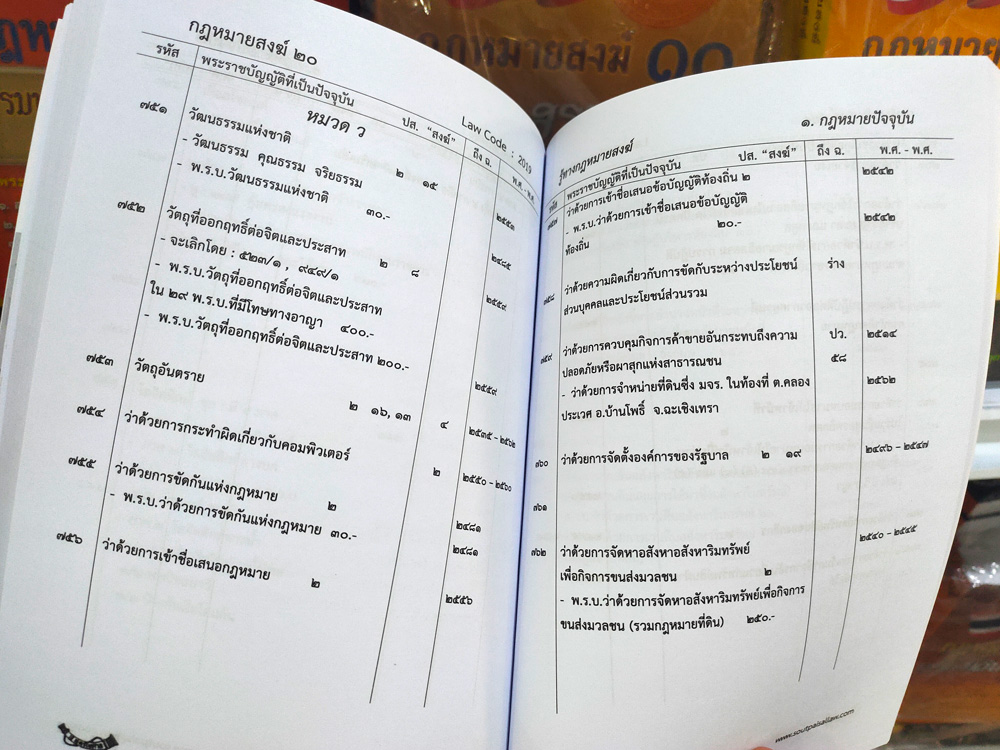 กฎหมายสงฆ์ ๒๐
Law Code : 2019
รหัส พระราชบัญญัติที่เป็นปัจจุบัน ปส. “สงฆ์” ถึง ฉ. พ.ศ. - พ.ศ.
หมวด ว
๗๕๑ วัฒนธรรมแห่งชาติ ๒ ๑๕
- วัฒนธรรม คุณธรรม จริยธรรม ๒๕๕๓
- พ.ร.บ.วัฒนธรรมแห่งชาติ ๓๐.-
๗๕๒ วัตถุที่ออกฤทธิ์ต่อจิตและประสาท ๒ ๘ ๒๔๘๕
- จะเลิกโดย : ๕๒๓/๑ , ๙๔๙/๑
- พ.ร.บ.วัตถุที่ออกฤทธิ์ต่อจิตและประสาท ๒๕๕๙
ใน ๒๙ พ.ร.บ.ที่มีโทษทางอาญา ๔๐๐.-
- พ.ร.บ.วัตถุที่ออกฤทธิ์ต่อจิตและประสาท ๒๐๐.-
๒๕๕๙
๗๕๓ วัตถุอันตราย ๒ ๑๖, ๑๓ ๔ ๒๕๓๕ - ๒๕๖๒
๗๕๔ ว่าด้วยการกระทำผิดเกี่ยวกับคอมพิวเตอร์ ๒ ๒๕๕๐ - ๒๕๖๐
๗๕๕ ว่าด้วยการขัดกันแห่งกฎหมาย ๒ ๒๔๘๑
- พ.ร.บ.ว่าด้วยการขัดกันแห่งกฎหมาย ๓๐.- ๒๔๘๑
๗๕๖ ว่าด้วยการเข้าชื่อเสนอกฎหมาย ๒ ๒๕๕๖
รู้ทางกฎหมายสงฆ์
๑. กฎหมายปัจจุบัน
รหัส พระราชบัญญัติที่เป็นปัจจุบัน ปส. “สงฆ์” ถึง ฉ. พ.ศ. - พ.ศ.
๗๕๗ ว่าด้วยการเข้าชื่อเสนอข้อบัญญัติท้องถิ่น ๒ ๒๕๔๒
- พ.ร.บ.ว่าด้วยการเข้าชื่อเสนอข้อบัญญัติ
ท้องถิ่น ๒๐.- ๒๕๔๒
๗๕๘ ว่าด้วยความผิดเกี่ยวกับการขัดกับระหว่างประโยชน์ ร่าง
ส่วนบุคคลและประโยชน์ส่วนรวม
๗๕๙ ว่าด้วยการควบคุมกิจการค้าขายอันกระทบถึงความ ปว. ๒๕๑๔
ปลอดภัยหรือผาสุกแห่งสาธารณชน ๕๘
- ว่าด้วยการจำหน่ายที่ดินซึ่ง มจร. ในท้องที่ ต.คลอง ๒๕๖๒
ประเวศ อ.บ้านโพธิ์ จ.ฉะเชิงเทรา
๗๖๐ ว่าด้วยการจัดตั้งองค์การของรัฐบาล ๒ ๑๙ ๒๔๙๖ - ๒๕๔๗
๗๖๑
๗๖๒ ว่าด้วยการจัดหาอสังหาอสังหาริมทรัพย์ ๒๕๔๐ - ๒๕๔๕
เพื่อกิจการขนส่งมวลชน ๒
- พ.ร.บ.ว่าด้วยการจัดหาอสังหาริมทรัพย์เพื่อกิจการ
ขนส่งมวลชน (รวมกฎหมายที่ดิน) ๒๕๐.-
www.soutpaisallaw.com
กฎหมายสงฆ์ ๑๐